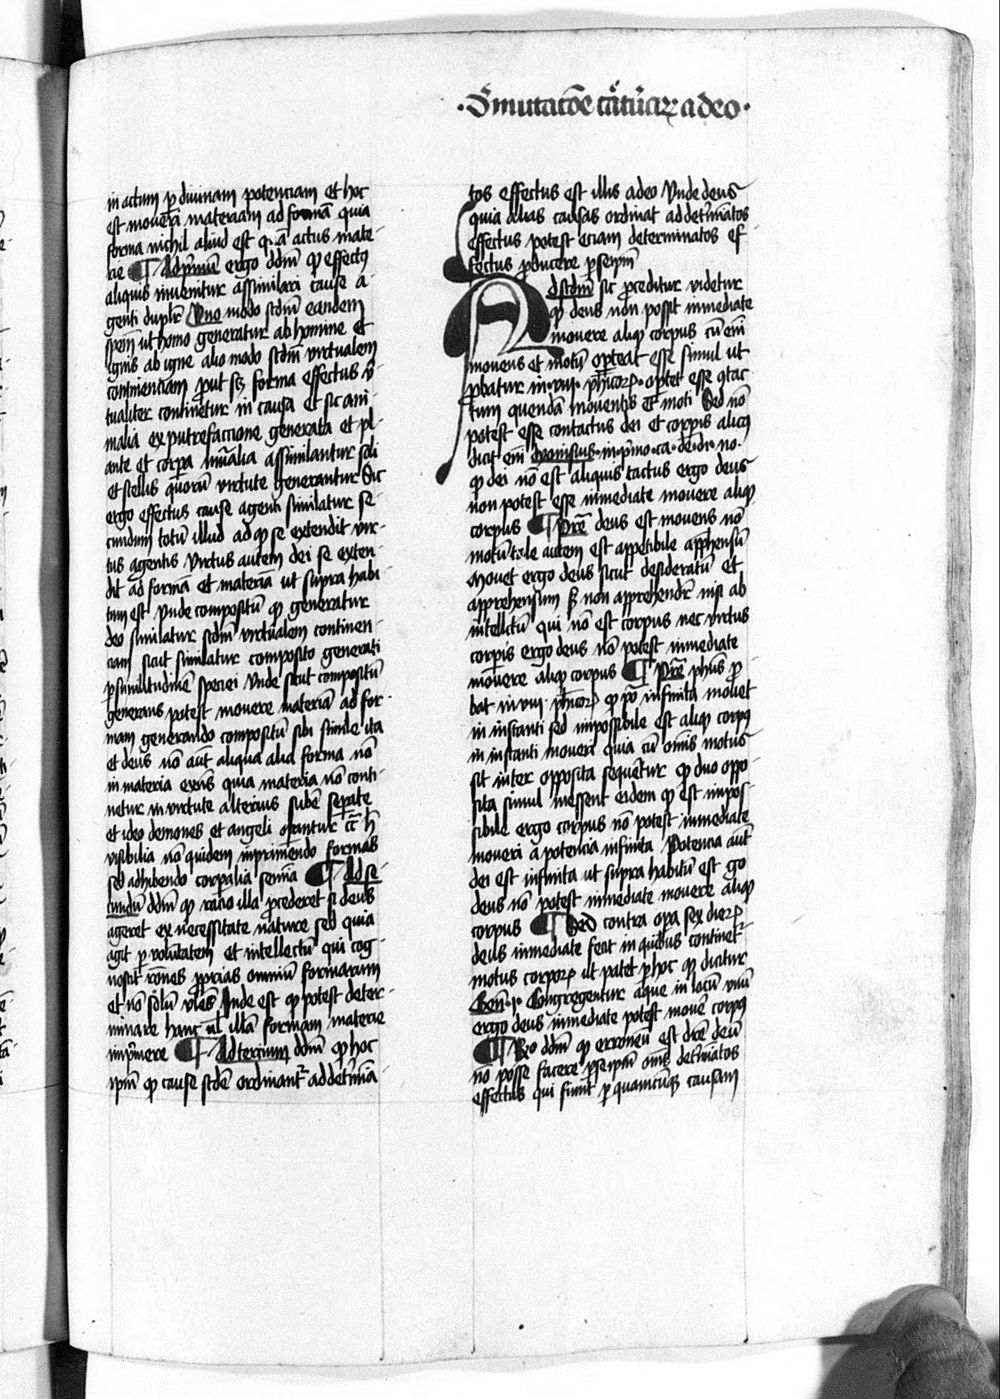 ·De mutacõe creaturaꝝ a deo·
in actum ꝑ diuinam potenciam et hoc
est mouere materiam ad formã quia
forma nichil aliud est qͣ actus mate-
rie ¶ Ad pͥmũ ergo ddm̃ ꝙ effectꝯ
aliquis inuenitur assimilari cause a-
genti duplr̃ Vno modo scdm̃ eandem
spem̃ ut homo generatur ab homine et
ignis ab igne alio modo scdm̃ virtualem
continentiam ꝓut scꝫ forma effectus vͥ-
tualiter continetur in causa et sic ani-
malia ex putrefactione generata et pl-
ante et corpa mĩalia assimilantur soli
et stellis quorũ virtute generantur Sic
ergo effectus cause agenti similatur se-
cundum totũ illud ad qͥ se extendit vir-
tus agentis Virtus autem dei se exten-
dit ad formã et materiã ut supra habi-
tum est Vnde compositũ qͥ generatur
deo similatur scdm̃ virtualem continen-
ciam sicut similatur composito generãti
ꝑ similitudinẽ speciei Vnde sicut compositũ
generans potest mouere materiã ad for-
mam generando compositũ sibi simile ita
et deus nõ aũt aliqua alia forma nõ
in materia exñs quia materia nõ conti-
netur in virtute alterius subẽ seꝑate
et ideo demones et angeli oꝑantur cͬ h̃
visibilia nõ quidem inprimendo formas
sed adhibendo corꝑalia semĩa ¶ Ad se-
cundũ ddm̃ ꝙ racio illa ꝓcederet si deus
ageret ex necessitate nature sed quia
agit ꝑ volũtatem et intellectũ qui cog-
noscit rõnes ꝓprias omniũ formarum
et nõ solũ vl̃es Inde est ꝙ potest deter-
minare hanc vl̃ illã formam materie
inpͥmere ¶ Ad tercium ddm̃ ꝙ hoc
ipm̃ ꝙ cause scdẽ ordinantͬ ad det̃mĩa-
tos effectus est illis a deo Vnde deus
quia alias causas ordinat ad det̃mĩatos
effectus potest eciam determinatos ef-
fectus ꝓducere ꝑ seipm̃
Ad scdm̃ sic ꝓceditur videtur
ꝙ deus non possit inmediate
mouere aliqͥ corpus cũ em̃
mouens et motũ oꝑteat esse simul ut
ꝓbatur in·vii·phicoꝝ·oꝑtet esse ꝯtac-
tum quendã mouentis et moti Sed nõ
potest esse contactus dei et corꝑis alicꝯ
dicit em̃ dyonisius·in pͥmo·ca·de·di·no·
ꝙ dei nõ est aliquis tactus ergo deus
non potest esse inmediate mouere aliqͥ
corpus ¶ Pret̃ deus est mouens nõ
motũ tale autem est appetibile app̃hensũ
Mouet ergo deus sicut desideratũ et
apprehensum sꝫ non apprehendit̃ nisi ab
intellectu qui nõ est corpus nec virtus
corꝑis ergo deus nõ potest inmediate
mouere aliqͥ corpus ¶ Pret̃ phus̃ ꝓ-
bat in·viii·phicoꝝ ꝙ põ infinita mouet
in instanti sed impossibile est aliqͥ corpꝯ
in instanti moueri quia cũ om̃is motus
sit inter opposita sequẽtur ꝙ duo oppo-
sita simul inessent eidem qͥ est impos-
sibile ergo corpus nõ potest inmediate
moueri a potencia infinita Potencia aũt
dei est infinita ut supra habitũ est go
deus nõ potest inmediate mouere aliqͥ
corpus ¶ Sed contra oꝑa sex dieꝝ
deus inmediate fecit in quibus continetͬ
motus corporꝝ ut patet ꝑ hoc qͥ dicitur
Geñ·i· Congregentur aque in locũ vnũ
ergo deus inmediate potest mouẽ corpꝯ
¶ Rõ ddm̃ ꝙ erroneũ est dicẽ deũ
nõ posse facere ꝑ seipm̃ om̃s det̃mĩatos
effectus qui fiunt ꝑ quamcũqꝫ causam